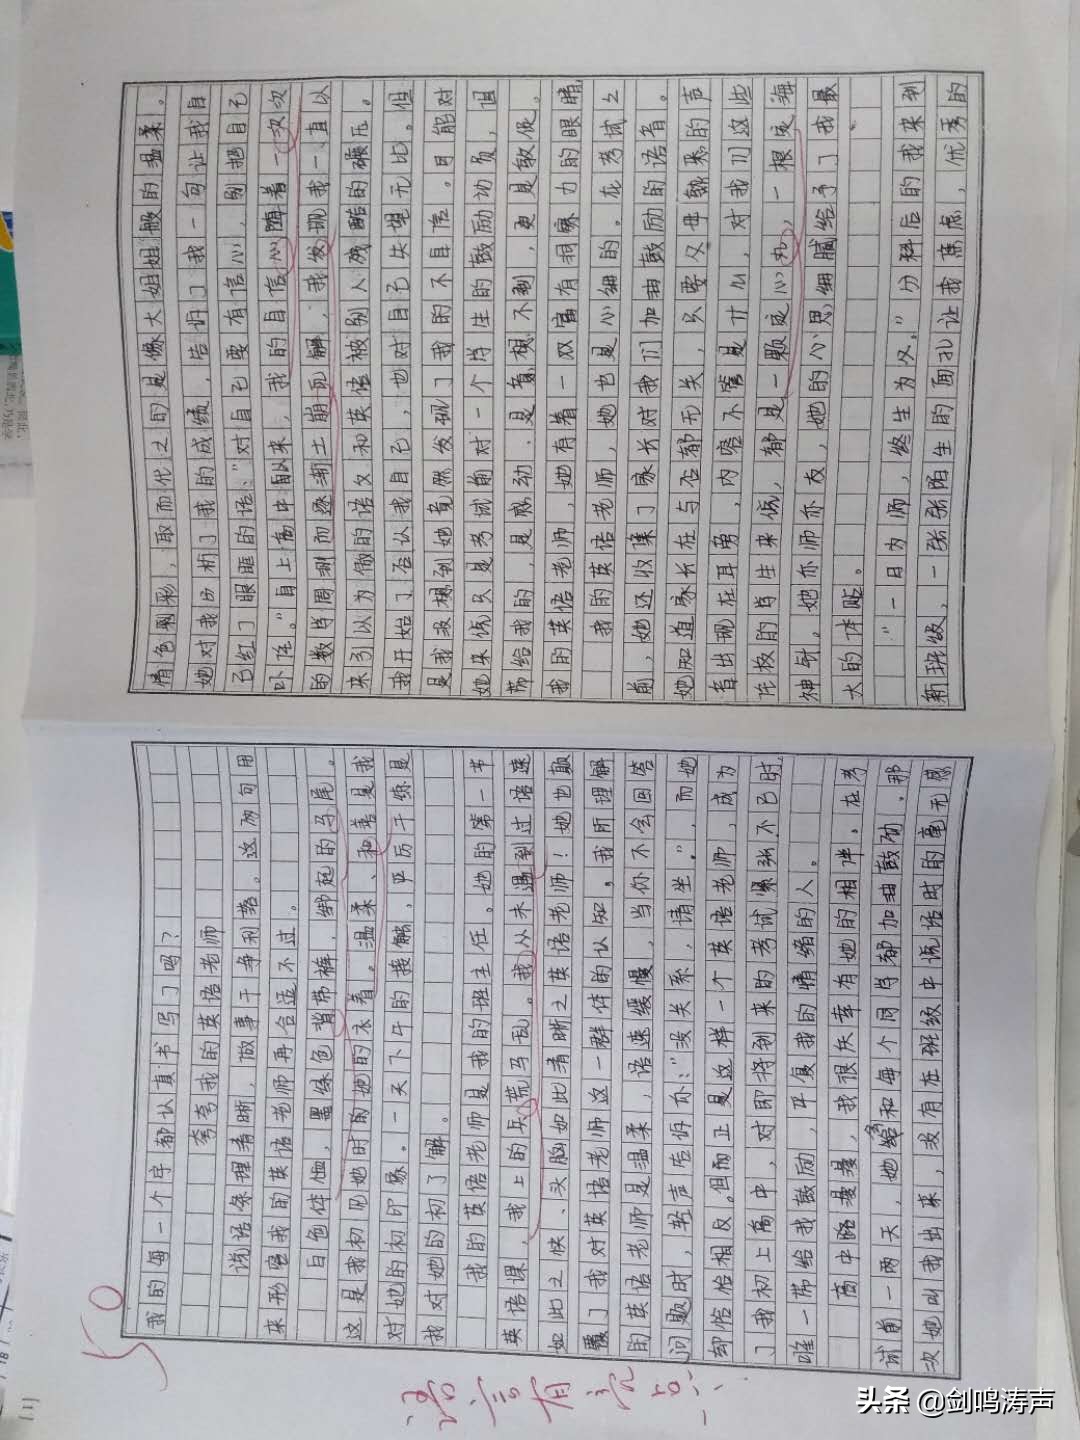 50
我的每一个字都认真书写了吗？
夸夸我的英语老师
说话条理清晰，做事干净利落。这两句用
来形容我的英语老师再合适不过。
白色体恤，墨绿色背带裤，绑起的马尾。
这是我初见她时的她的衣着。温柔、和善是我
对她的初印象。一天下午的接触，严厉干练是
我对她的初了解。
我的英语老师是我的班主任。她的第一节
英语课，我上的兵荒马乱。我从未遇到过语速
如此之快、头脑如此清晰之英语老师！她也颠
覆了我对英语老师这一群体的认知。我所理解
的英语老师是温柔，语速缓慢，当你不会回答
问题时，轻声告诉你：“没关系，请坐。”，而她
却恰恰相反。但而正是这样一个英语老师，成为
了我初上高中，对即将到来的考试紧张不已时，
唯一带给我鼓励，平复我的情绪的人。
高中路漫漫，我很庆幸有她的相伴。在考
试前一两天，她会和每个同学都加油鼓劲，那
次她叫我出来，没有在班级中说话时的毫无感
情色彩，取而代之的是像大姐姐般的温柔。
她对我分析了我的成绩，告诉了我一句让我自
己红了眼眶的话：“对自己要有信心，别把自己
吓住。”自上高中以来，我的自信心随着一次次
的数学周测而逐渐土崩瓦解，我发现我一直以
来引以为傲的语文和英语被别人残酷的碾压。
我开始了否认我自己，也对自己失望无比。但
是我没想到她竟然发现了我的不自信。可能对
她来说只是考试前对一个学生的鼓励动员，但
带给我的，是感动，是意想不到，更是敬佩。
我的英语老师，她有着一双富有洞察力的眼睛
我的英语老师，她也是心细的。在考试之
前，她还收集了家长对我们加油鼓励的语音。
她知道家长在与否都无关，只要父母熟悉的声
音出现在耳旁，内容不管是什么，对我们这些
住校的学生来说，都是一颗定心丸，一根定海
神针。她亦师亦友，她的心思细腻给予了我最
大的体贴。
“一日为师，终生为父。”分科后的我来到
新班级，一张张陌生的面孔让我焦虑，优秀的
语言有亮点
头条 @剑鸣涛声